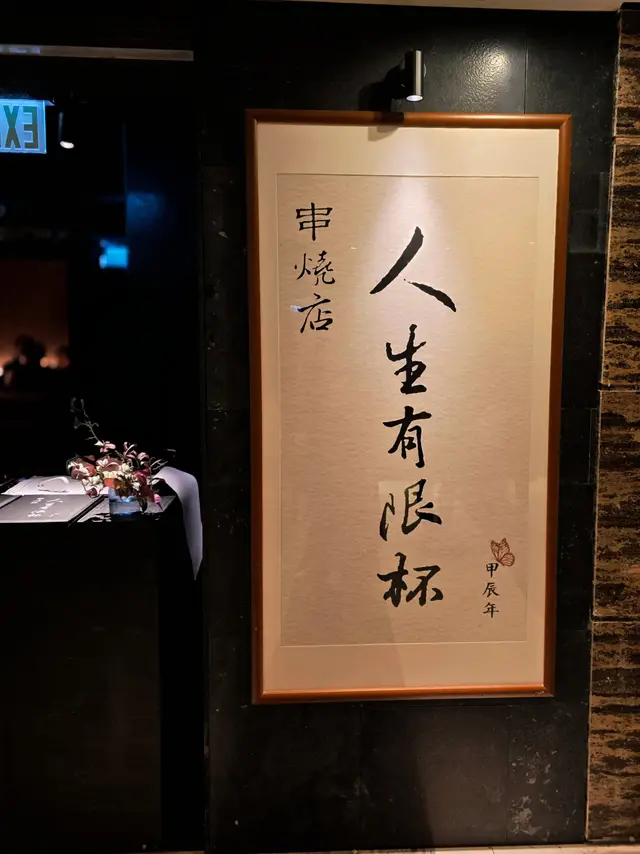 人生有限杯
串燒店
甲辰年
EXI